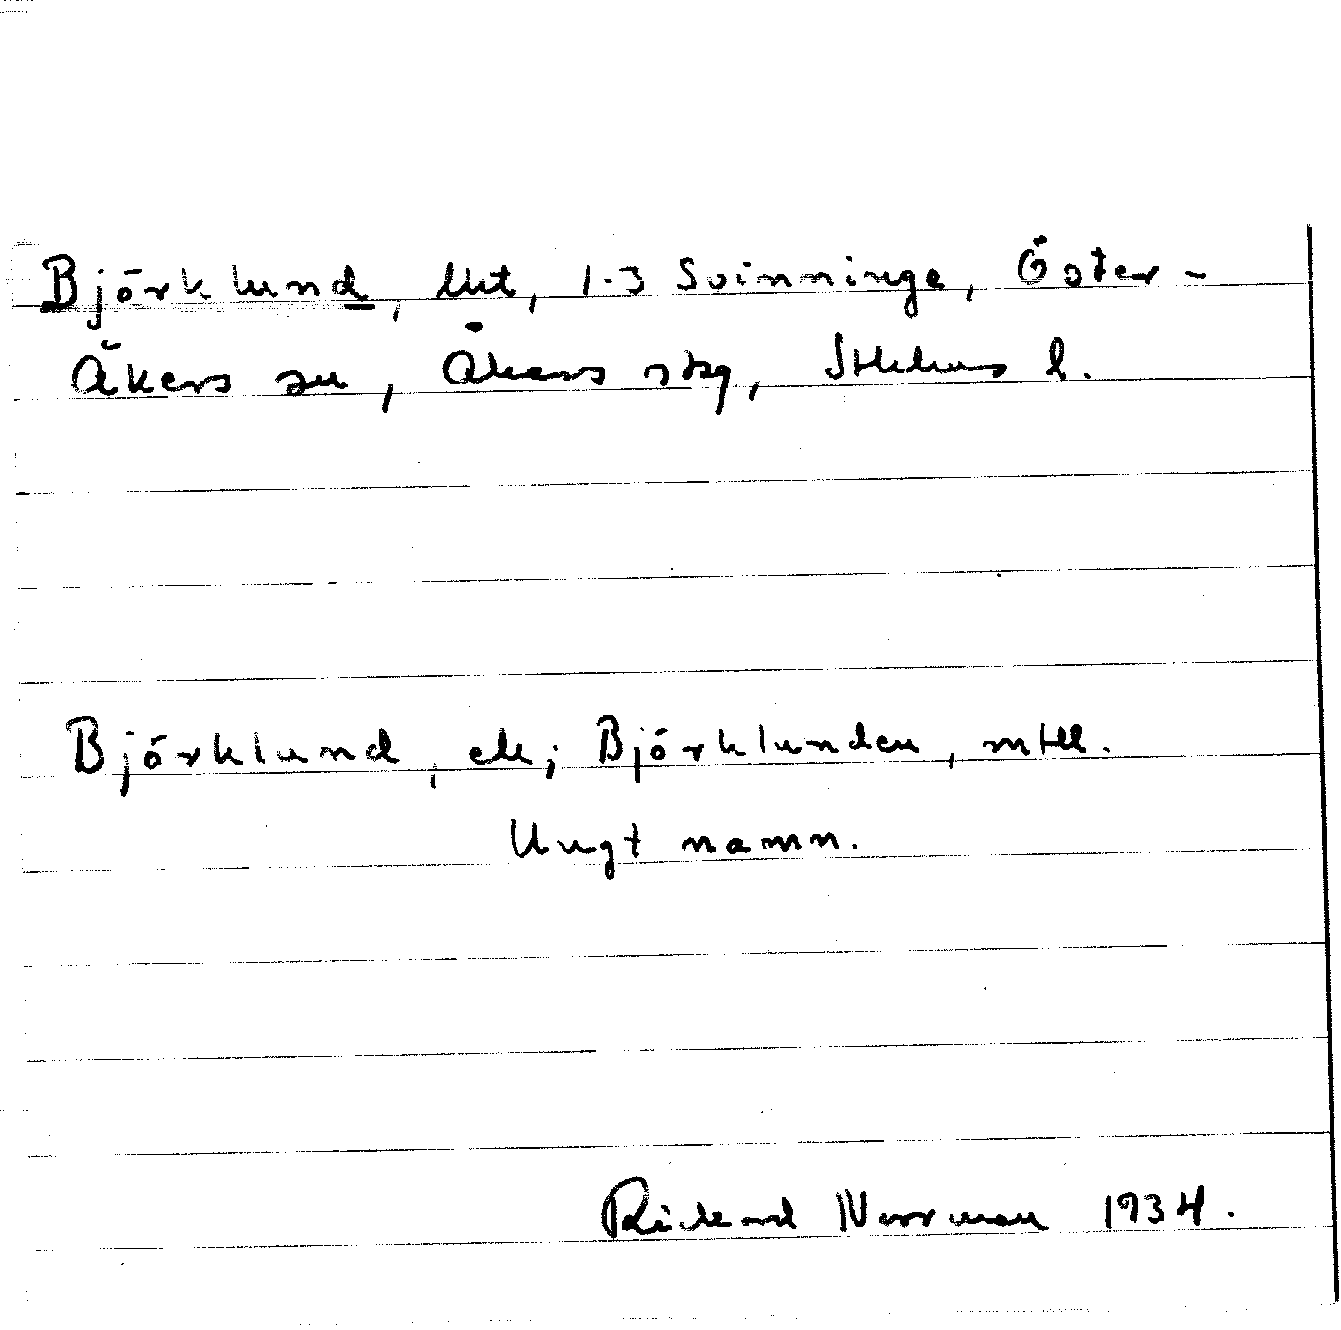 Björklund, lht, 1-3 Svinninge, Öster-
Åkers sn, Åkers skg, Sthlms l.
Björklund, ek; Björklunden, mtll.
Ungt namn.
Rickard Norrman 1934.